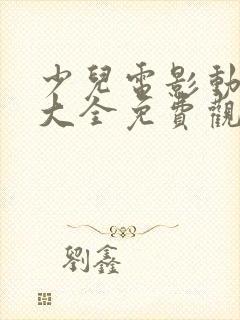 少兒電影動
大全免費觀
劉鑫